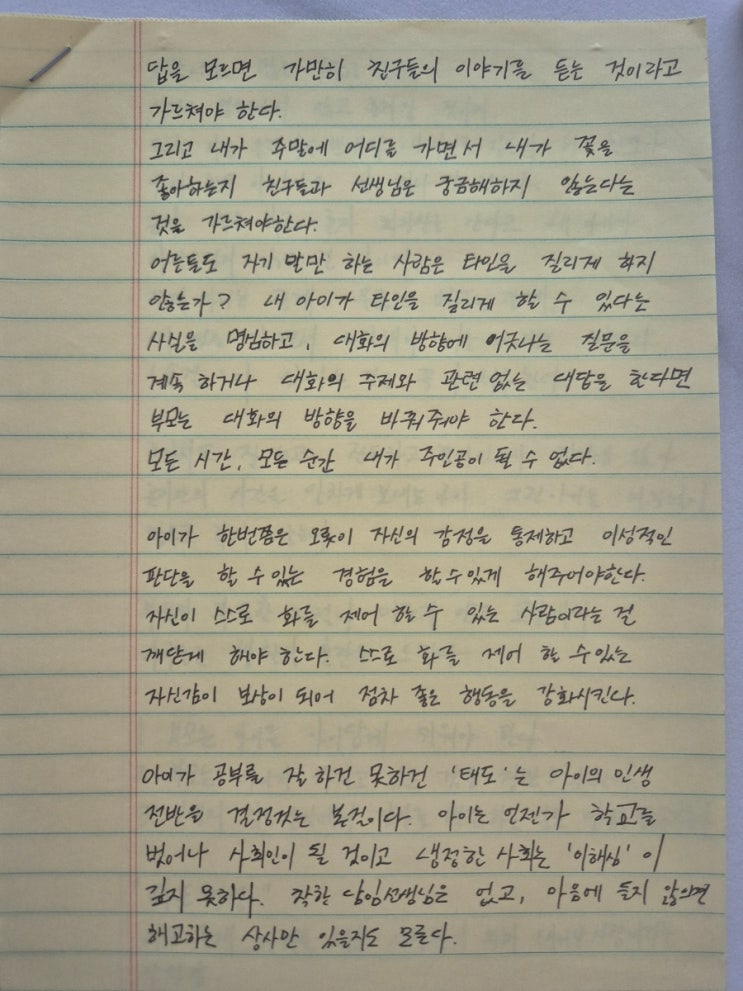 답을 모르면 가만히 친구들의 이야기를 듣는 것이라고
가르쳐야 한다.
그리고 내가 주말에 어디를 가면서 내가 꽃을
좋아하는지 친구들과 선생님은 궁금해하지 않는다는
것을 가르쳐야한다.
어른들도 자기 말만 하는 사람은 타인을 질리게 하지
않는가? 내 아이가 타인을 질리게 할 수 있다는
사실을 명심하고, 대화의 방향에 어긋나는 질문을
계속 하거나 대화의 주제와 관련 없는 대답을 한다면
부모는 대화의 방향을 바꿔줘야 한다.
모든 시간, 모든 순간 내가 주인공이 될 수 없다.
아이가 한번쯤은 오롯이 자신의 감정을 통제하고 이성적인
판단을 할 수 있는 경험을 할 수 있게 해주어야한다.
자신이 스스로 화를 제어 할 수 있는 사람이라는 걸
깨닫게 해야 한다. 스스로 화를 제어 할 수 있는
자신감이 보상이 되어 점차 좋은 행동을 강화시킨다.
아이가 공부를 잘 하건 못하건 '태도'는 아이의 인생
전반을 결정짓는 본질이다. 아이는 언젠가 학교를
벗어나 사회인이 될 것이고 냉정한 사회는 '이해심'이
깊지 못하다. 착한 담임선생님은 없고, 마음에 들지 않으면
해고하는 상사만 있을지도 모른다.